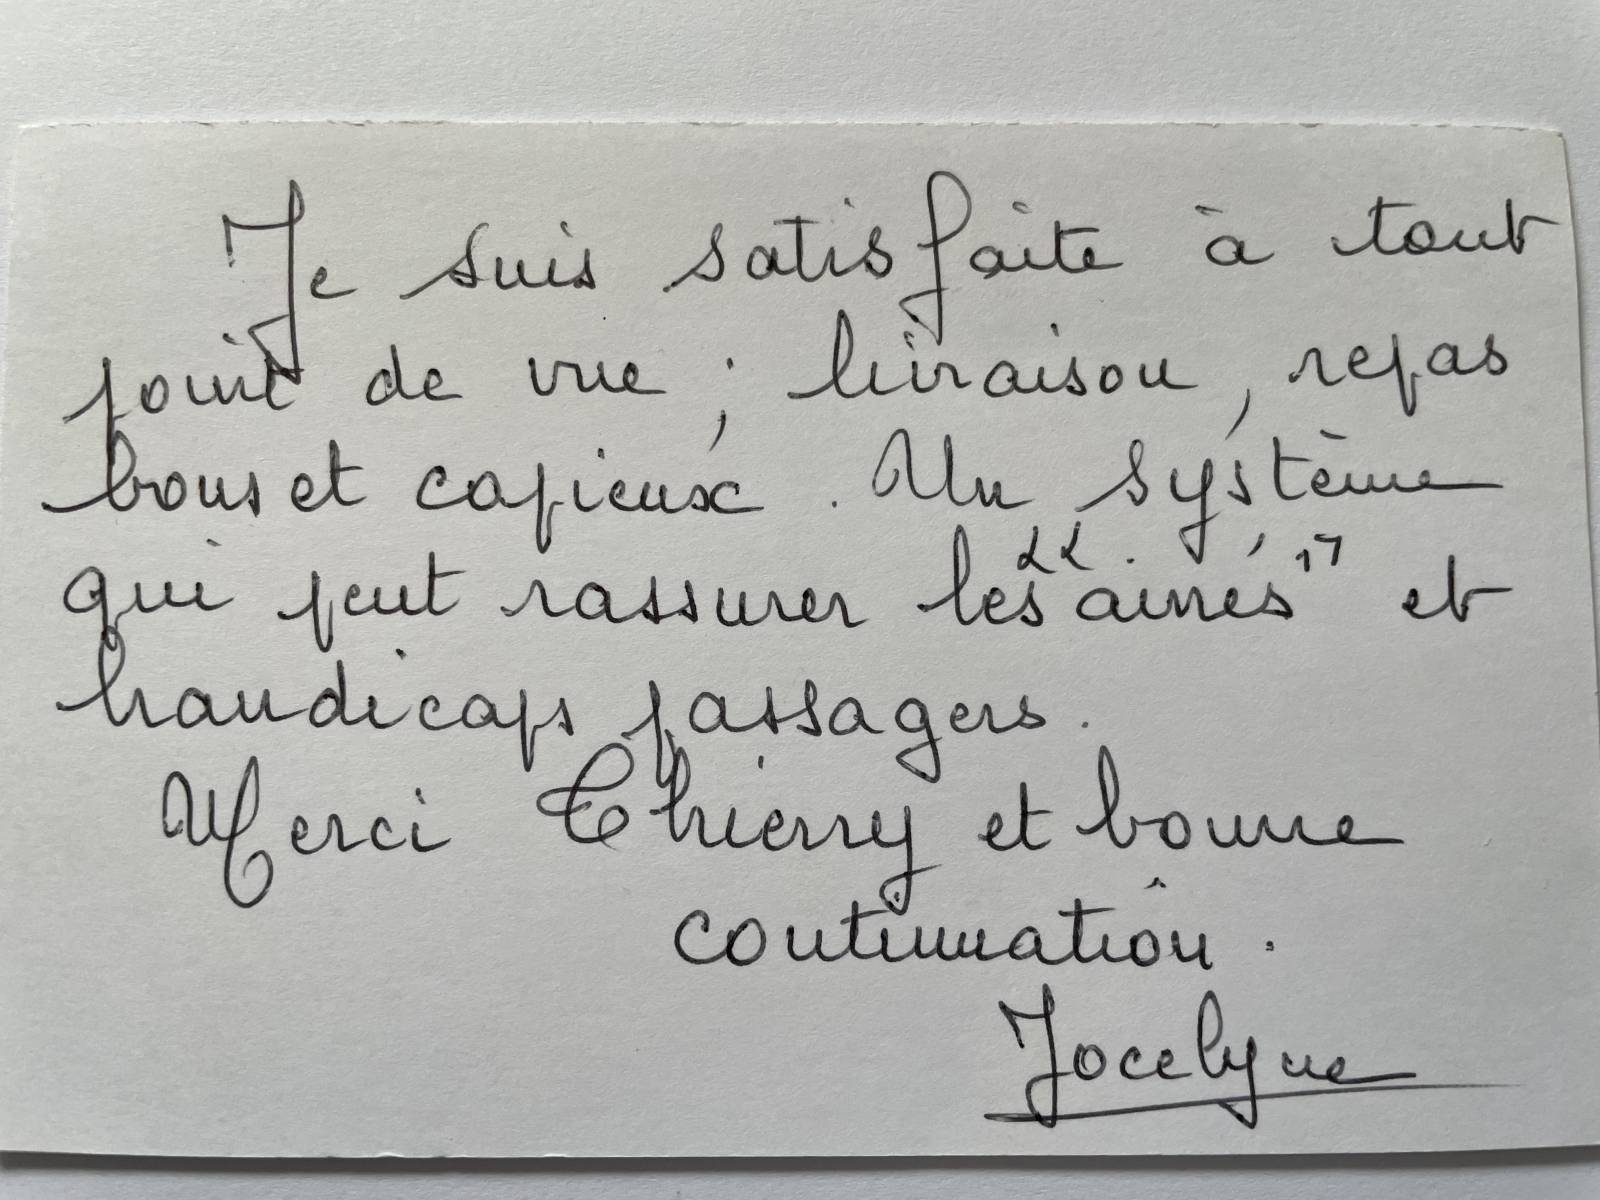 Je suis satisfaite à tout
point de vue ; livraison, repas
bons et copieux. Un système
qui peut rassurer les "ainés" et
handicaps passagers.
Merci Thierry et bonne
continuation.
Jocelyne